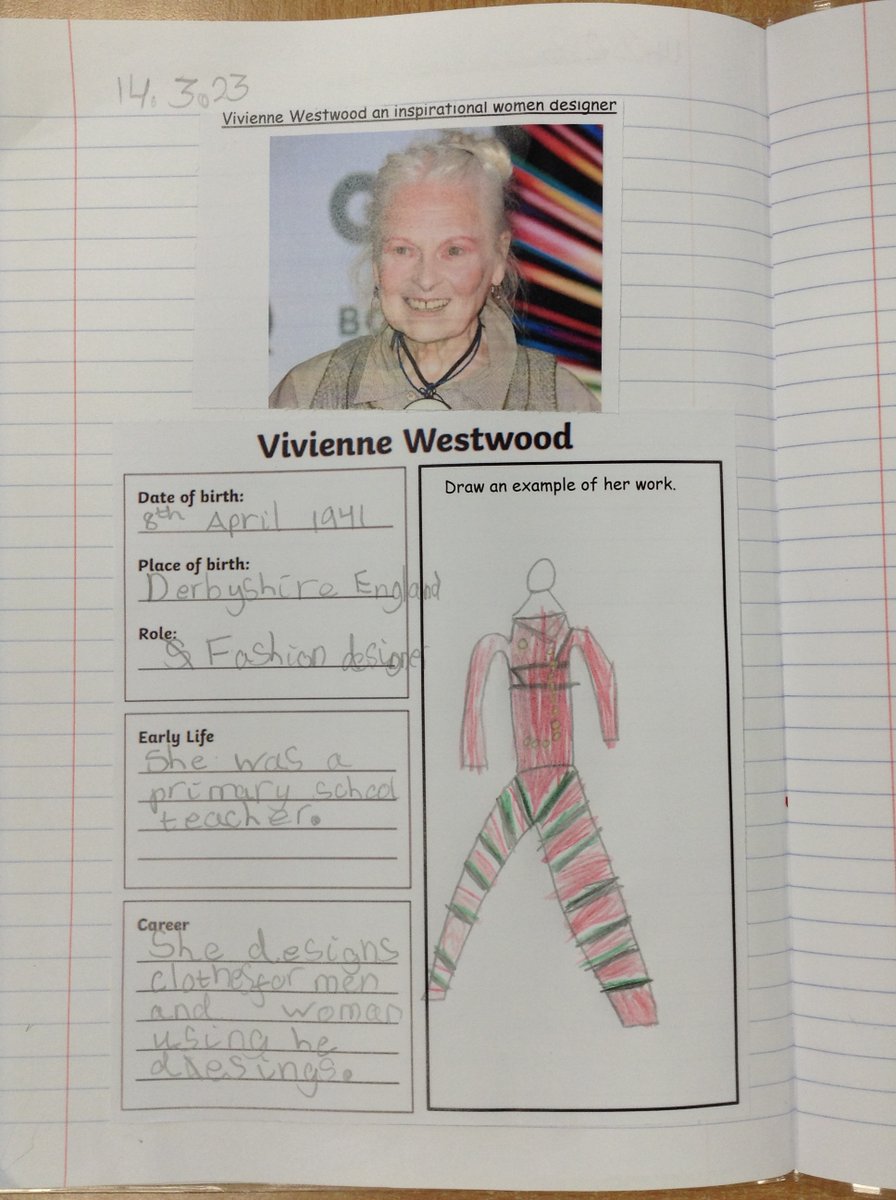 14. 3.23
Vivienne Westwood an inspirational women designer
G
BO
Vivienne Westwood
Date of birth:
8th April 1941
Place of birth:
Derbyshire England
Role:
Fashion designer
Early Life
She was a
primary school
teacher.
Career
She designs
clothes for men
and woman
using he
desings.
Draw an example of her work.